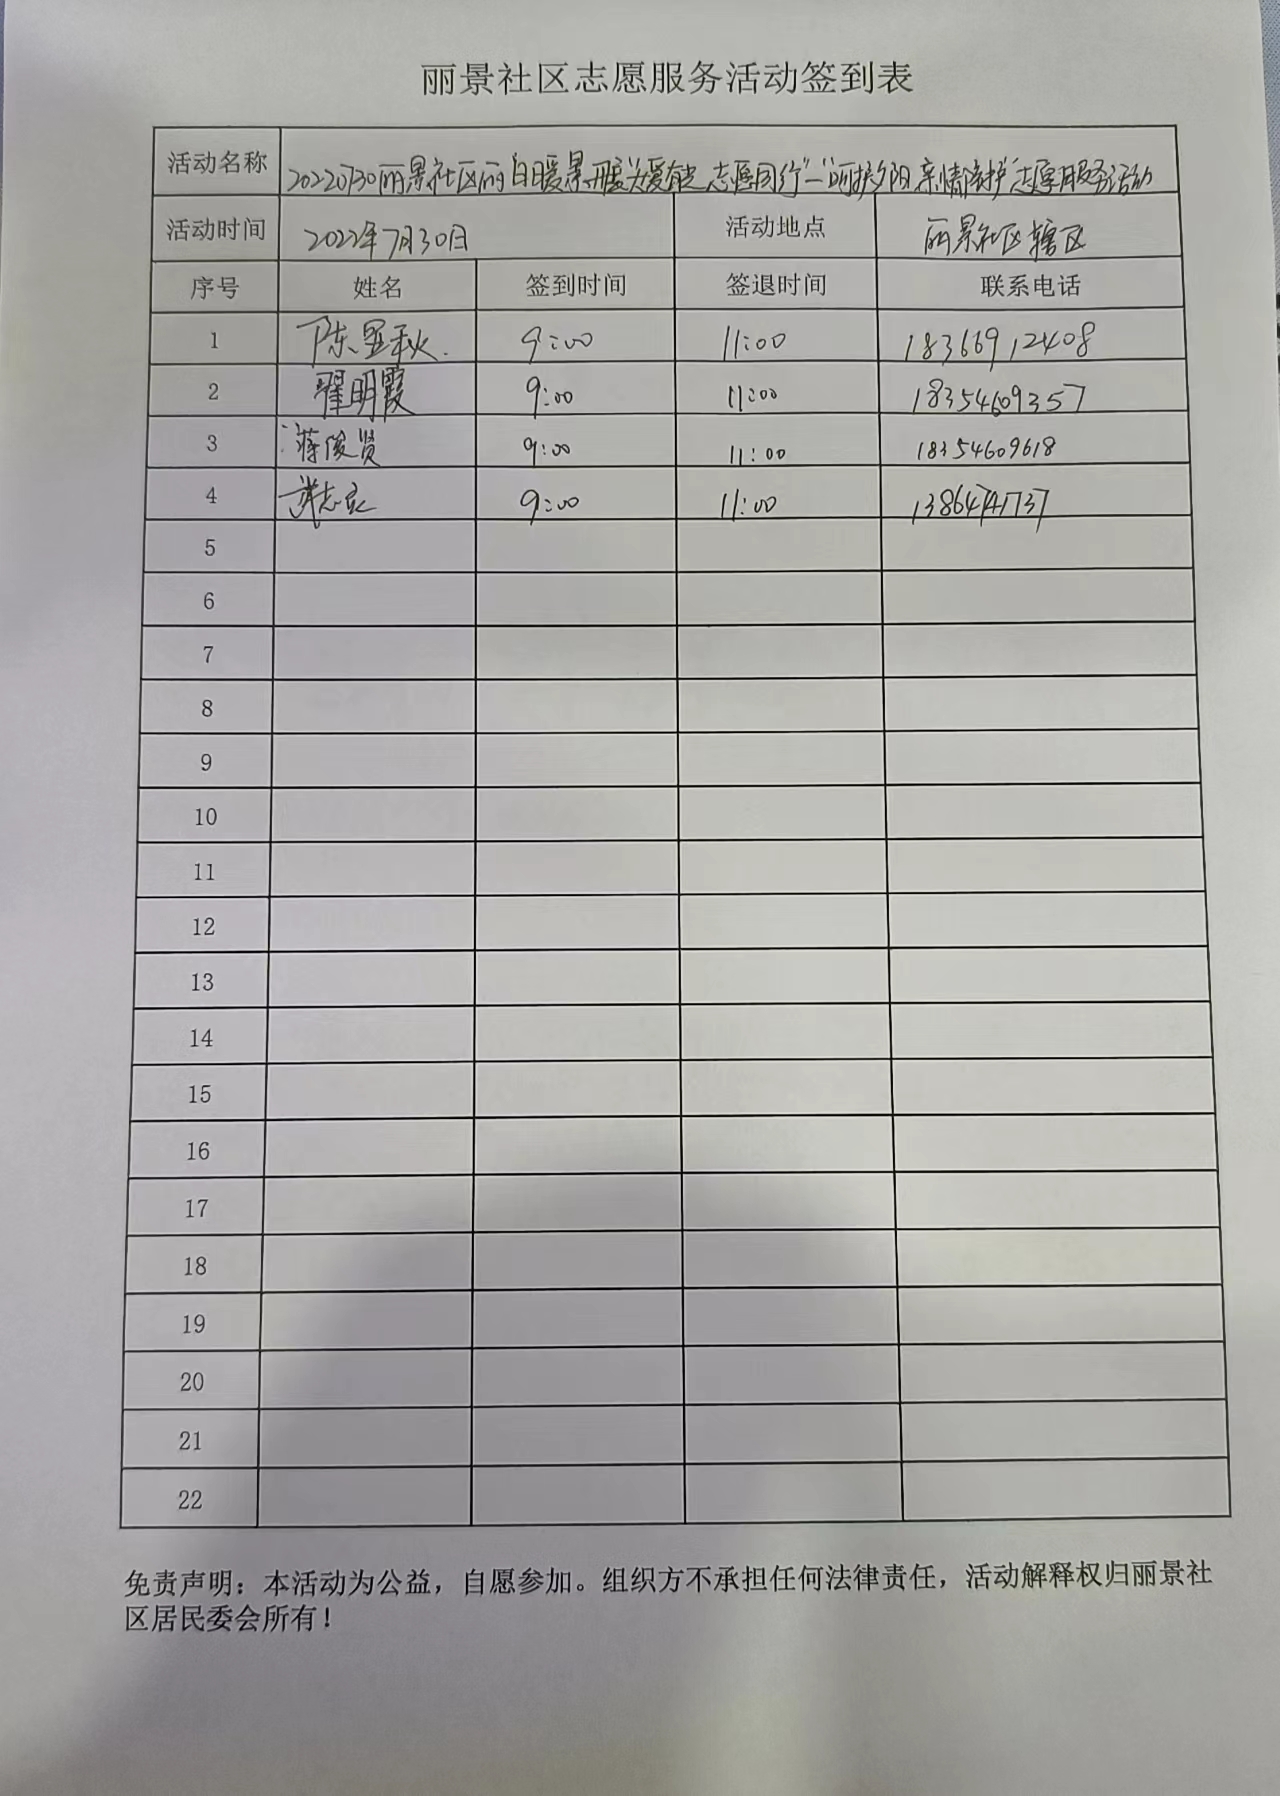 丽景社区志愿服务活动签到表
活动名称 20220730丽景社区 志愿同行"一"呵护夕阳 亲情陪护"志愿服务活动
活动时间 2022年7月30日 活动地点 丽景社区辖区
序号 姓名 签到时间 签退时间 联系电话
1 陈 秋 9:00 11:00 18366912408
2 翟明霞 9:00 11:00 18354609357
3 蒋俊贤 9:00 11:00 18354609618
4 志 9:00 11:00
5
6
7
8
9
10
11
12
13
14
15
16
17
18
19
20
21
22
免责声明：本活动为公益，自愿参加。组织方不承担任何法律责任，活动解释权归丽景社
区居民委会所有！